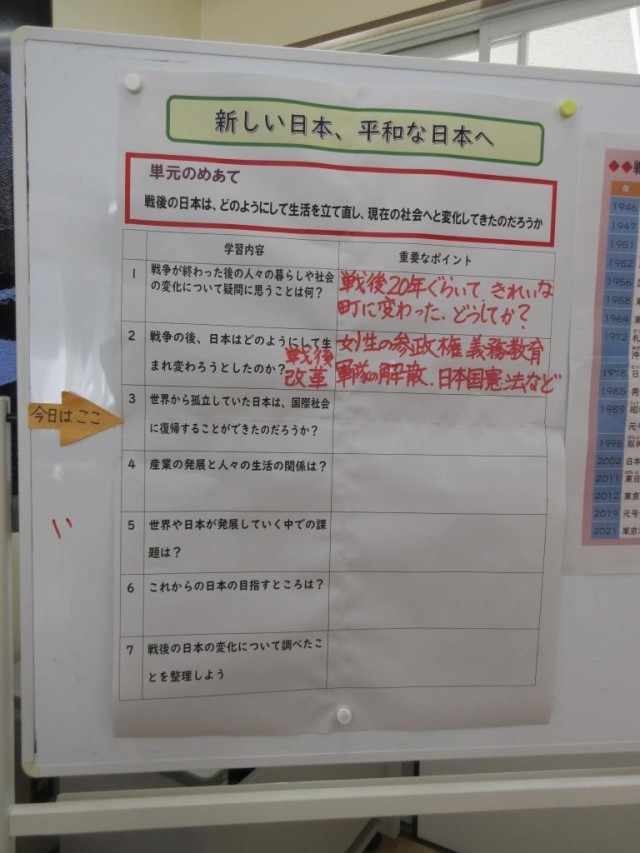 新しい日本、平和な日本へ
単元のめあて
戦後の日本は、どのようにして生活を立て直し、現在の社会へと変化してきたのだろうか
学習内容
重要なポイント
1
戦争が終わった後の人々の暮らしや社会
の変化について疑問に思うことは何？
戦後20年ぐらいで、きれいな
町に変わった、どうしてか？
2
戦争の後、日本はどのようにして生
まれ変わろうとしたのか？
戦後
改革
女性の参政権 義務教育
軍隊の解散、日本国憲法など
今日はここ
3
世界から孤立していた日本は、国際社会
に復帰することができたのだろうか？
4
産業の発展と人々の生活の関係は？
5
世界や日本が発展していく中での課
題は？
6
これからの日本の目指すところは？
7
戦後の日本の変化について調べたこ
とを整理しよう
い
◆◆戦
1946
1947
1951
1952
1956
1958
1964
1972
1978
1985
1989
元号
1995
2002 日本
2011 東日
2012 東京
2019 元号
2021 東京